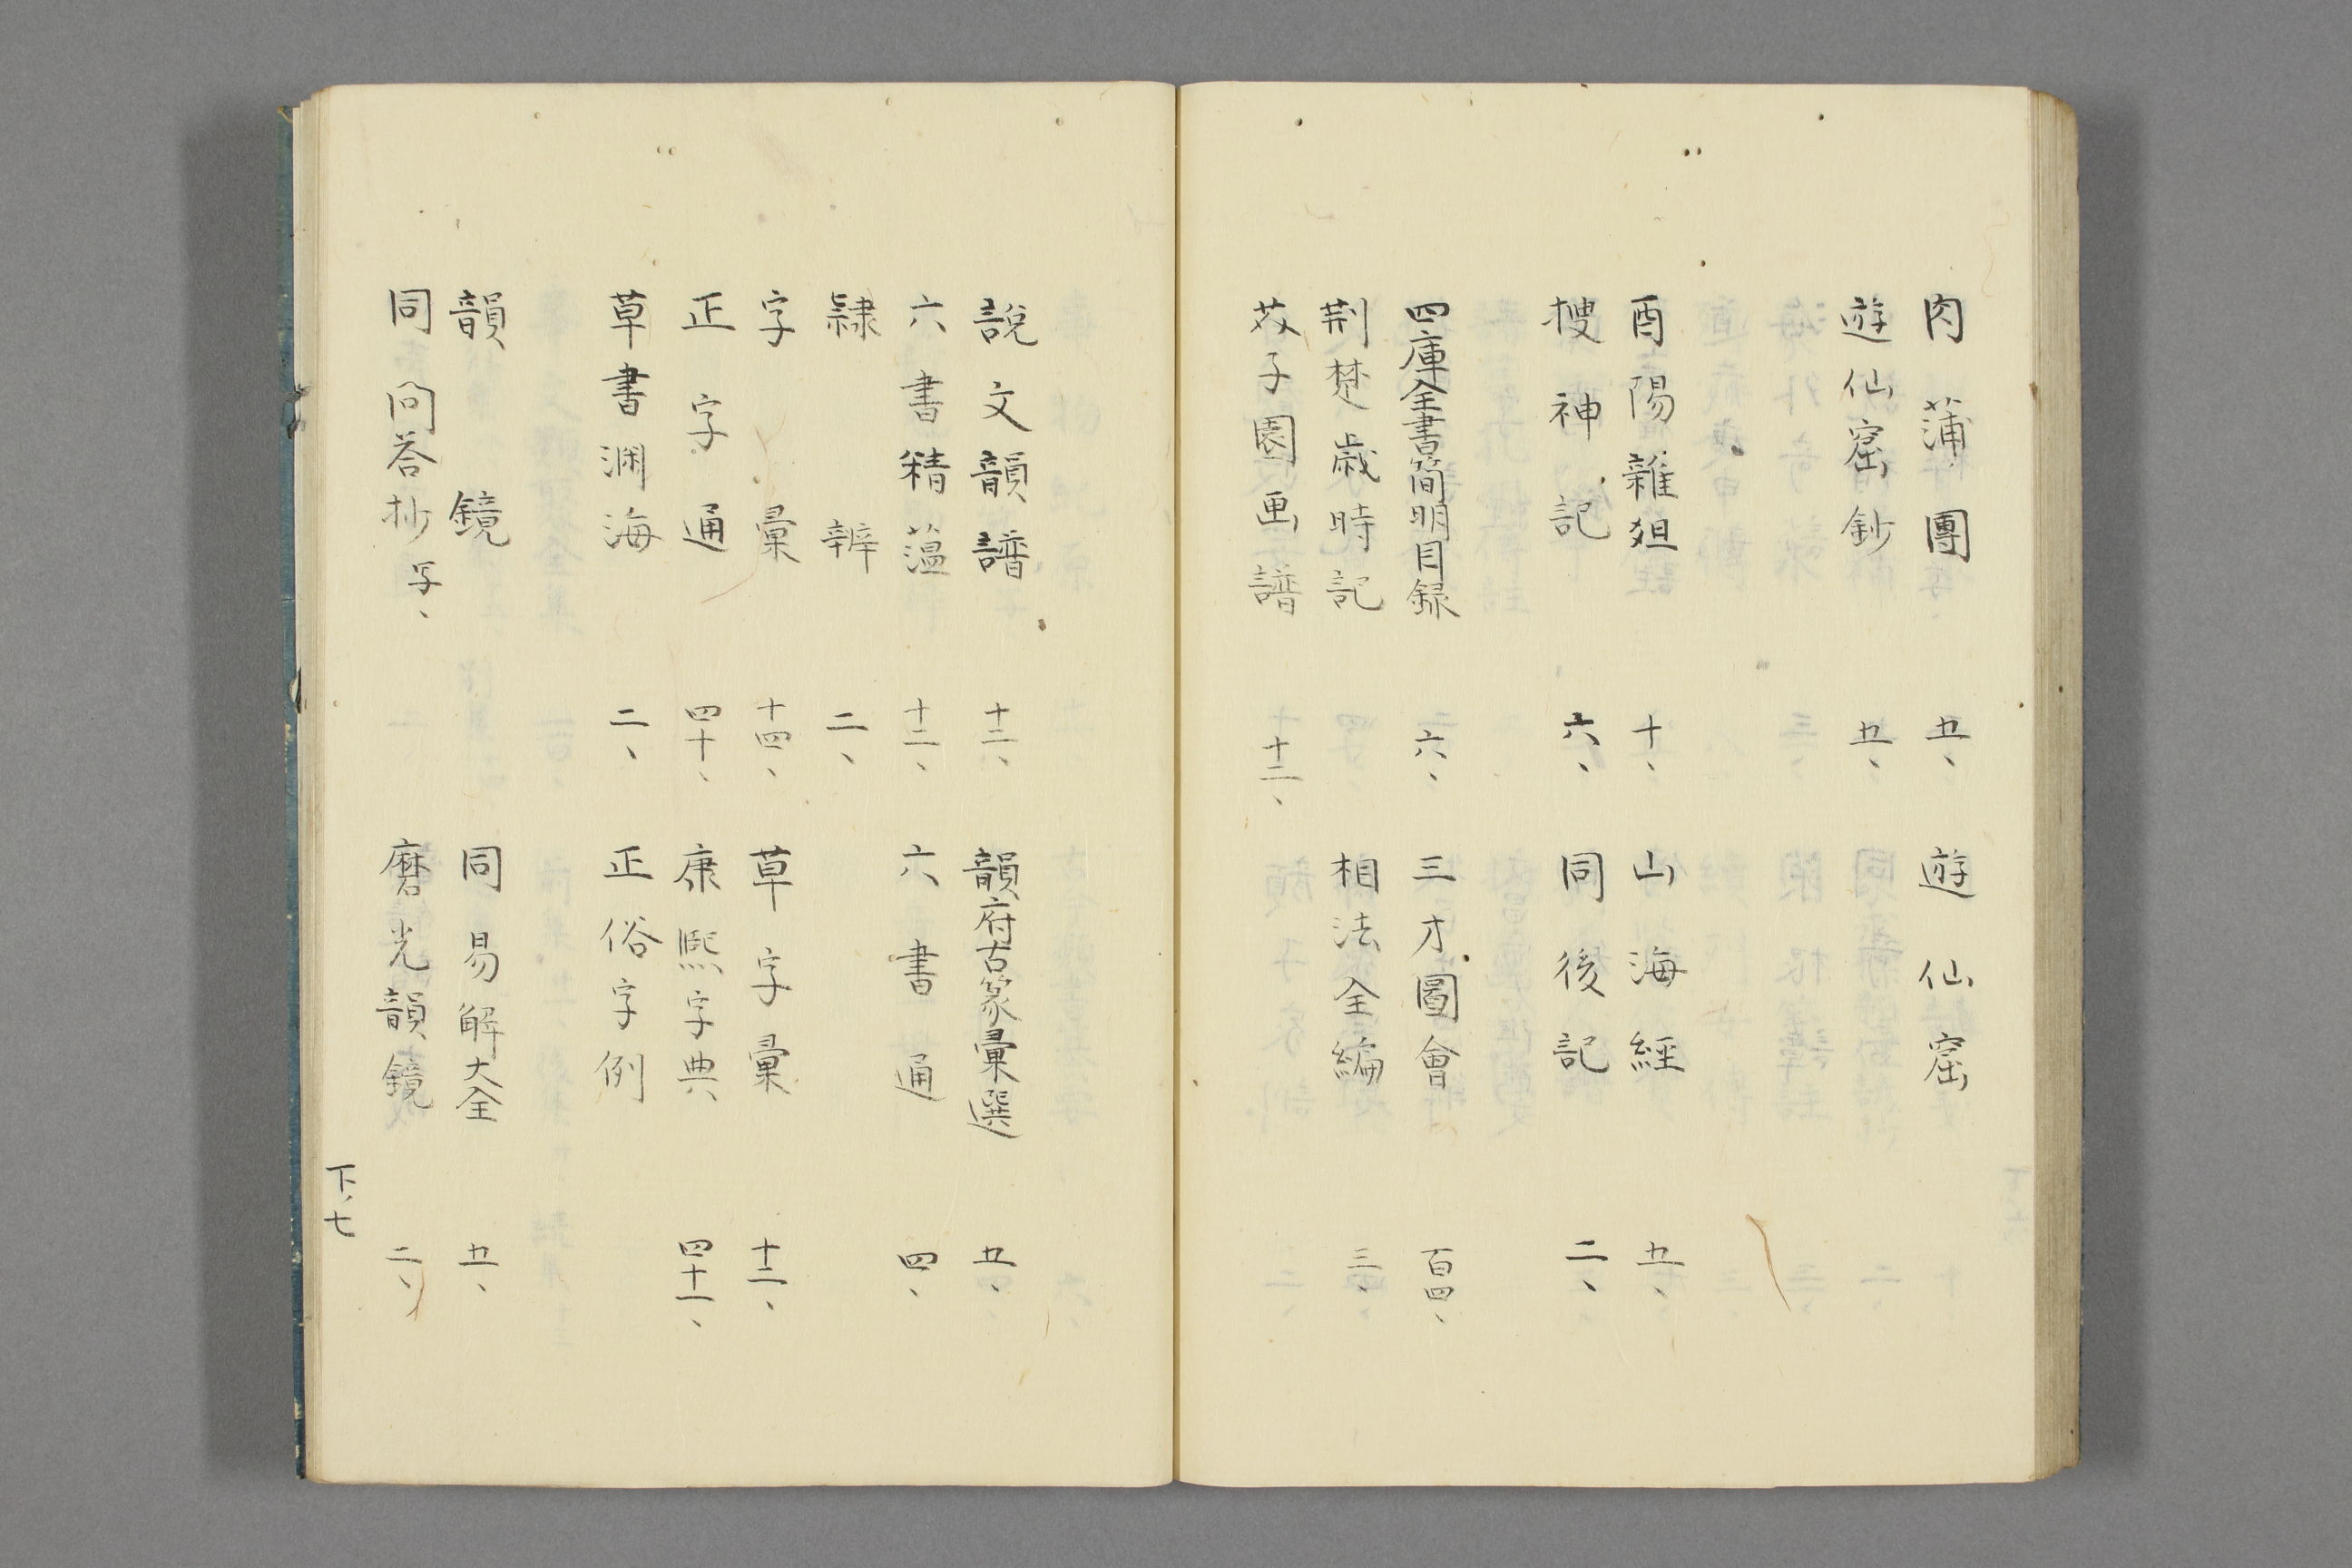 肉蒲團 五、 遊仙窟
遊仙窟鈔 五、
酉陽雜俎 十、 山海經 五、
搜神記 六、 同後記 二、
四庫全書簡明目録 六、 三才圖會 百四、
荆楚歳時記 相法全編 三、
芥子園画譜 十二、
説文韻譜 十二、 韻府古篆彙選 五、
六書精薀 十二、 六書通 四、
隷辨 二、
字彙 十四、 草字彙 十二、
正字通 四十、 康熙字典 四十一、
草書渕海 二、 正俗字例
韻鏡 同易解大全 五、
同問答抄 写、 磨光韻鏡 二、
下、七